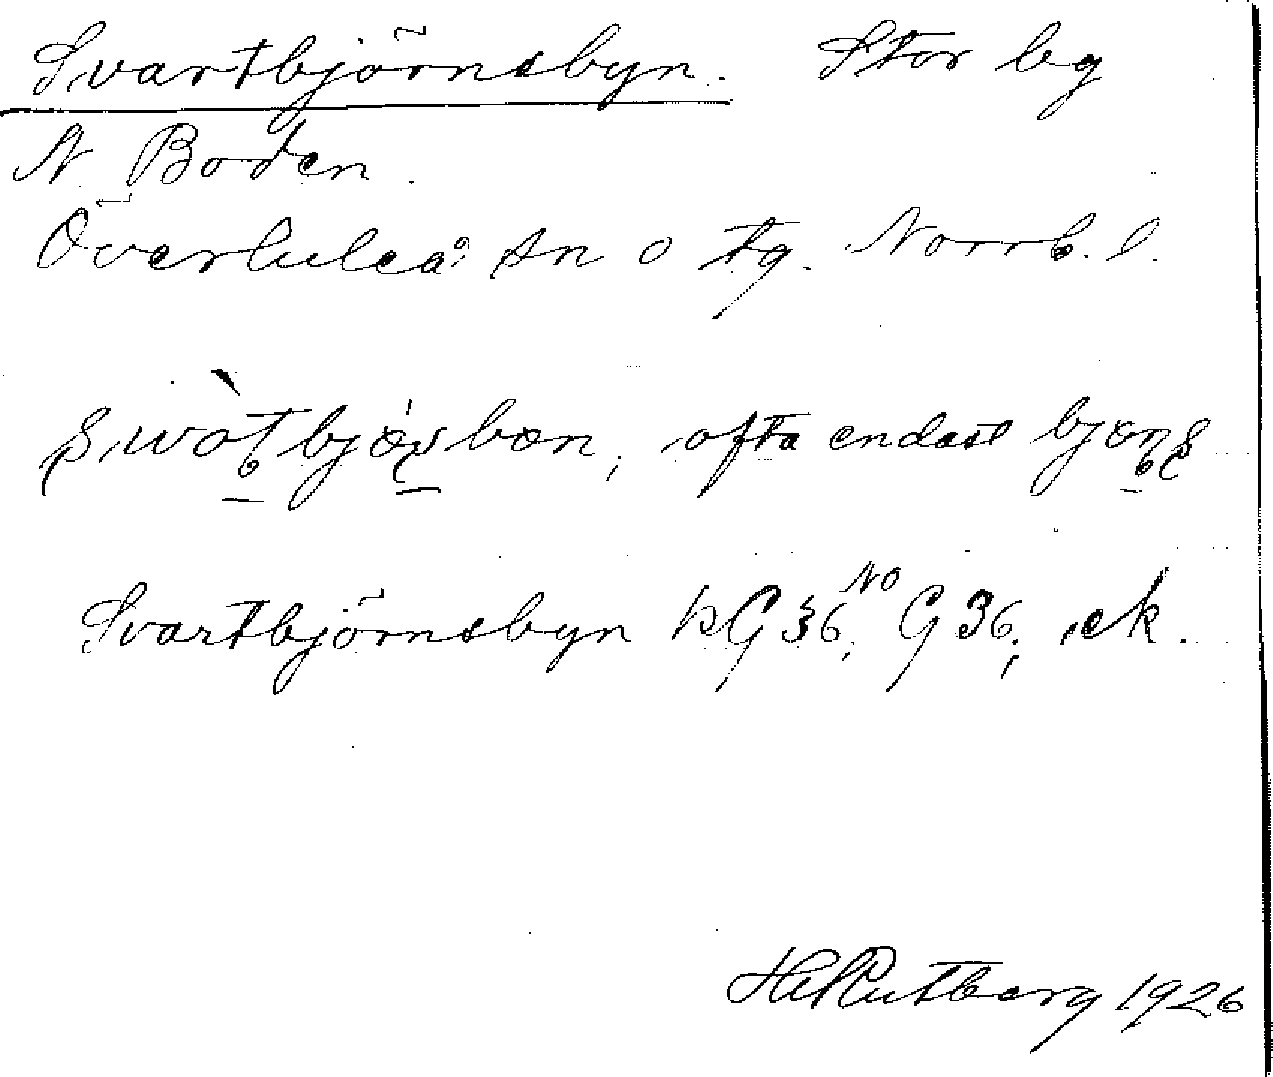 Svartbjörnsbyn. Stor by
N. Boden.
Överluleå sn o tg. Norrb. l.
ofta endast
Svartbjörnsbyn kG36NO, G36, ek.
Hj Rutberg 1926